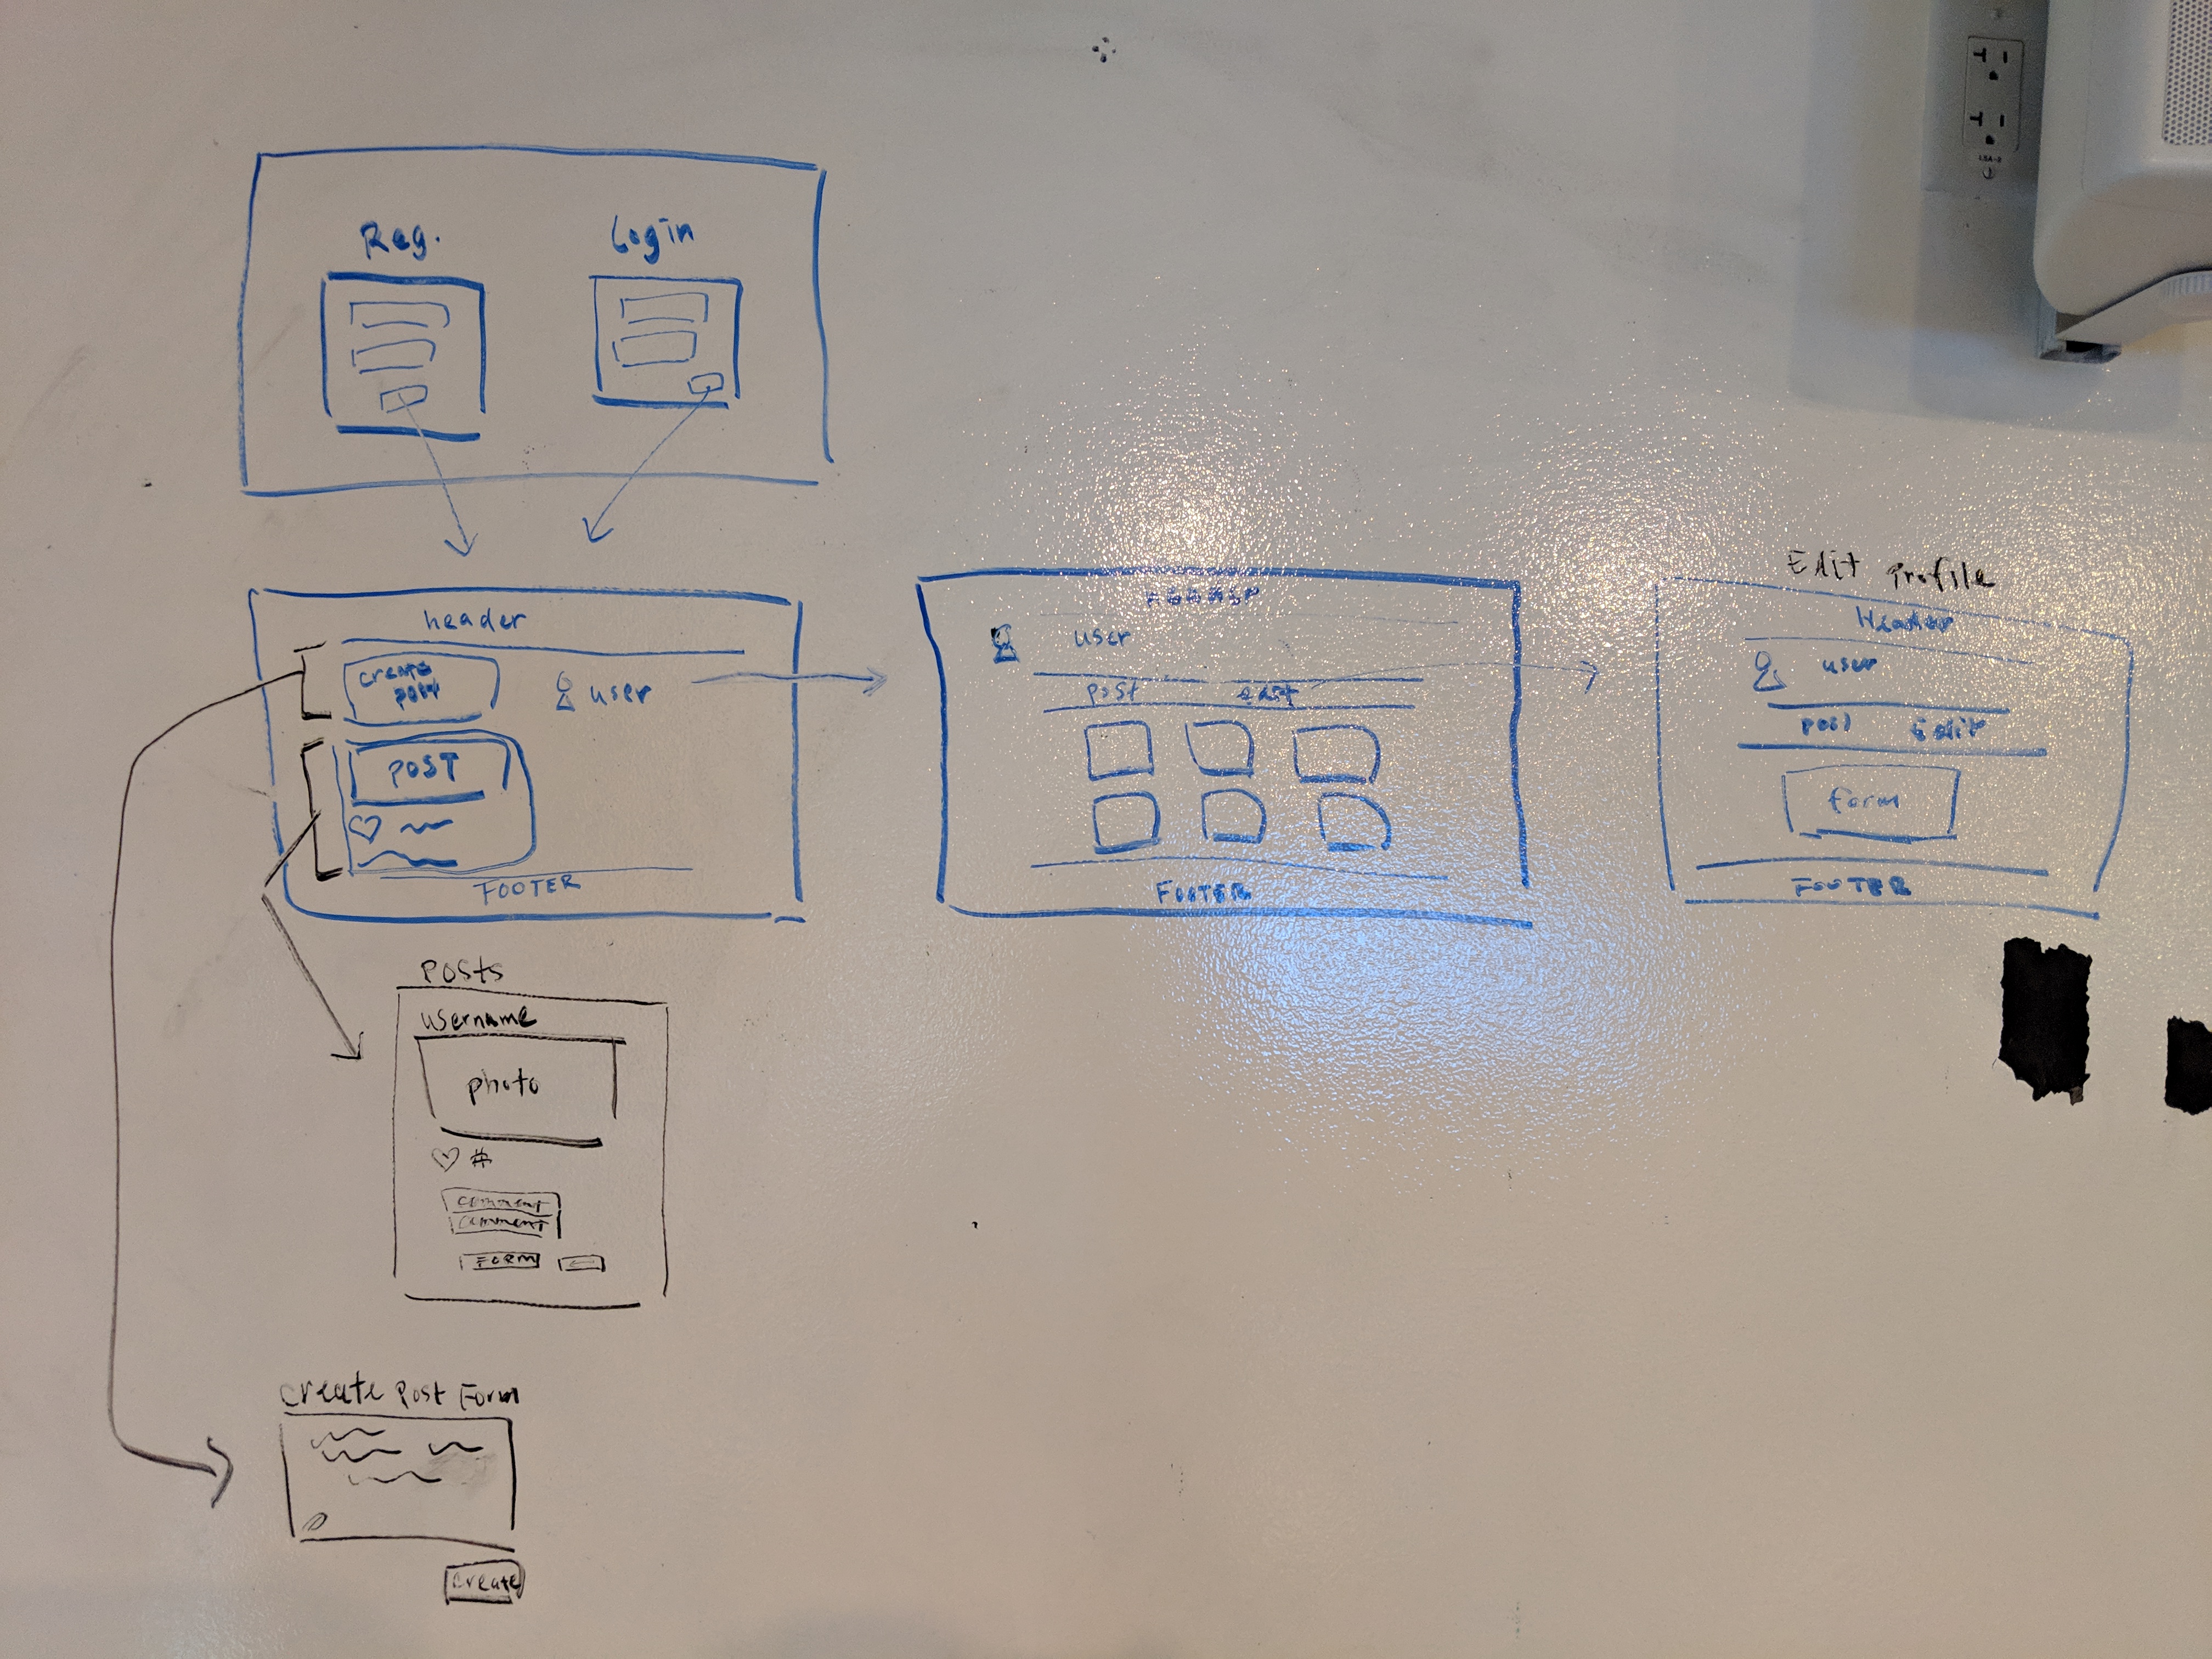 Reg.
Login
header
create
post
user
POST
FOOTER
user
post edit
FOOTER
Edit Profile
Header
user
post Edit
form
FOOTER
Posts
username
photo
#
comment
comment
FORM
Create Post Form
create